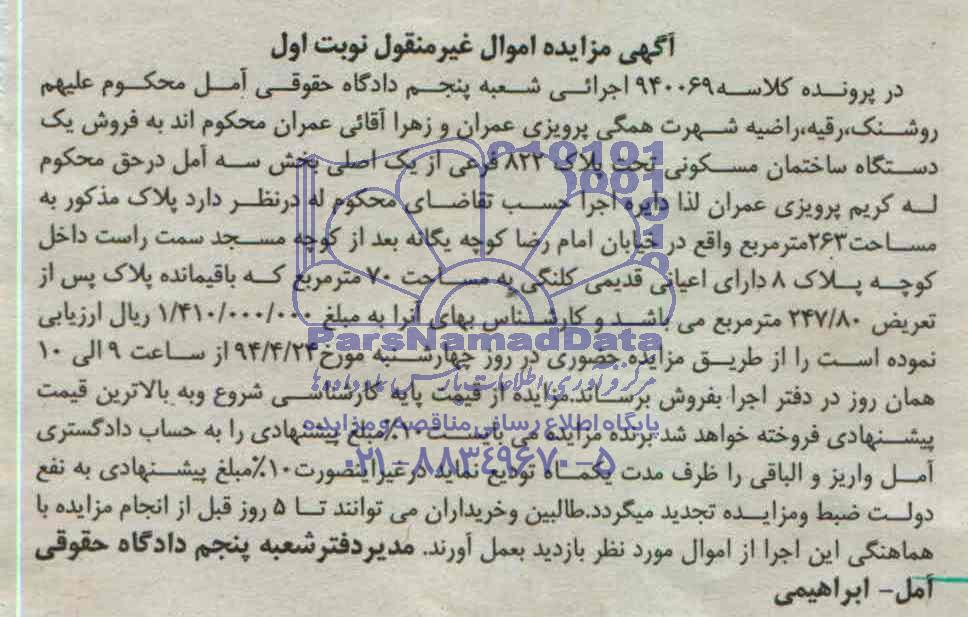 آگهی مزایده اموال غیرمنقول نوبت اول
در پرونده کلاسه۹۴۰۰۶۹ اجرائی شعبه پنجم دادگاه حقوقی آمل محکوم علیهم
روشنک،رقیه،راضیه شهرت همگی پرویزی عمران و زهرا آقائی عمران محکوم اند به فروش یک
دستگاه ساختمان مسکونی تحت پلاک ۸۲۲ فرعی از یک اصلی بخش سه آمل درحق محکوم
له کریم پرویزی عمران لذا دایره اجرا حسب تقاضای محکوم له درنظر دارد پلاک مذکور به
مساحت۲۶۳مترمربع واقع در خیابان امام رضا کوچه یگانه بعد از کوچه مسجد سمت راست داخل
کوچه پلاک ۸ دارای اعیانی قدیمی کلنگی به مساحت ۷۰ مترمربع که باقیمانده پلاک پس از
تعریض ۲۴۷/۸۰ مترمربع می باشد و کارشناس بهای آنرا به مبلغ ۱/۴۱۰/۰۰۰/۰۰۰ ریال ارزیابی
نموده است را از طریق مزایده حضوری در روز چهارشنبه مورخ۹۴/۴/۲۴ از ساعت ۹ الی ۱۰
همان روز در دفتر اجرا بفروش برساند.مزایده از قیمت پایه کارشناسی شروع وبه بالاترین قیمت
پیشنهادی فروخته خواهد شد.برنده مزایده می بایست ۱۰٪مبلغ پیشنهادی را به حساب دادگستری
آمل واریز و الباقی را ظرف مدت یکماه تودیع نماید درغیراینصورت۱۰٪مبلغ پیشنهادی به نفع
دولت ضبط ومزایده تجدید میگردد.طالبین وخریداران می توانند تا ۵ روز قبل از انجام مزایده با
هماهنگی این اجرا از اموال مورد نظر بازدید بعمل آورند. مدیردفترشعبه پنجم دادگاه حقوقی
آمل- ابراهیمی
ParsNamadData
مرکز فرآوری اطلاعات پارس نماد داده ها
پایگاه اطلاع رسانی مناقصه و مزایده
۰۲۱-۸۸۳۴۹۶۷۰-۵